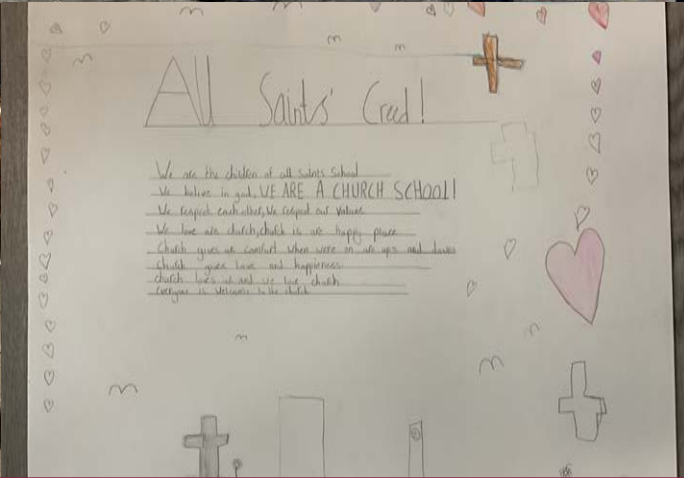 All Saints' Creed!
We are the children of all saints School
We believe in god, WE ARE A CHURCH SCHOOL!
We respect each other, We respect our values
We love are church, church is are happy place
Church gives us comfort when were on are ups and downs
Church gives love and happiness.
church loves us and we love church
everyone is welcome to the church